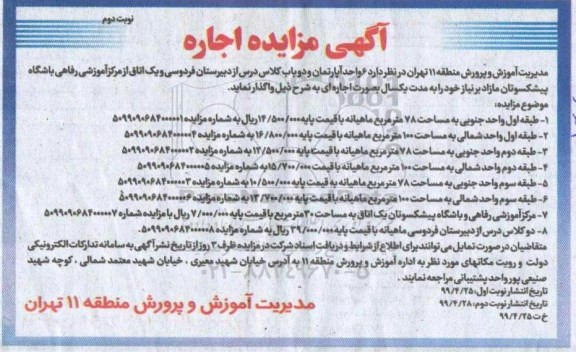 نوبت دوم
آگهی مزایده اجاره
مدیریت آموزش و پرورش منطقه ۱۱ تهران در نظر دارد ۶ واحد آپارتمان و دو باب کلاس درس از دبیرستان فردوسی و یک اتاق از مرکز آموزشی رفاهی باشگاه
پیشکسوتان مازاد بر نیاز خود را به مدت یکسال بصورت اجاره ای به شرح ذیل واگذار نماید.
موضوع مزایده:
۱- طبقه اول واحد جنوبی به مساحت ۷۸ متر مربع ماهیانه با قیمت پایه ۱۴/۵۰۰/۰۰۰ ریال به شماره مزایده ۵۰۹۹۰۹۰۶۸۴۰۰۰۰۰۱
۲- طبقه اول واحد شمالی به مساحت ۱۰۰ متر مربع ماهیانه با قیمت پایه ۱۶/۸۰۰/۰۰۰ به شماره مزایده ۵۰۹۹۰۹۰۶۸۴۰۰۰۰۰۴
۳- طبقه دوم واحد جنوبی به مساحت ۷۸ متر مربع ماهیانه با قیمت پایه ۱۳/۵۰۰/۰۰۰ به شماره مزایده ۵۰۹۹۰۹۰۶۸۴۰۰۰۰۰۲
۴- طبقه دوم واحد شمالی به مساحت ۱۰۰ متر مربع ماهیانه با قیمت پایه ۱۵/۷۰۰/۰۰۰ به شماره مزایده ۵۰۹۹۰۹۰۶۸۴۰۰۰۰۰۵
۵- طبقه سوم واحد جنوبی به مساحت ۷۸ متر مربع ماهیانه به قیمت پایه ۱۰/۵۰۰/۰۰۰ به شماره مزایده ۵۰۹۹۰۹۰۶۸۴۰۰۰۰۰۳
۶- طبقه سوم واحد شمالی به مساحت ۱۰۰ متر مربع ماهیانه با قیمت پایه ۱۳/۷۰۰/۰۰۰ به شماره مزایده ۵۰۹۹۰۹۰۶۸۴۰۰۰۰۰۶
۷- مرکز آموزشی رفاهی و باشگاه پیشکسوتان یک اتاق به مساحت ۳۰ متر مربع با قیمت پایه ۷/۰۰۰/۰۰۰ ریال با مزایده شماره ۵۰۹۹۰۹۰۶۸۴۰۰۰۰۰۷
۸- دو کلاس درس از دبیرستان فردوسی ماهیانه با قیمت پایه ۲۹/۰۰۰/۰۰۰ ریال به شماره مزایده ۵۰۹۹۰۹۰۶۸۴۰۰۰۰۰۸
متقاضیان در صورت تمایل می توانند برای اطلاع از شرایط و دریافت اسناد شرکت در مزایده ظرف ۲ روز از تاریخ نشر آگهی به سامانه تدارکات الکترونیکی
دولت و رویت مکانهای مورد نظر به اداره آموزش و پرورش منطقه ۱۱ به آدرس خیابان شهید معیری ، خیابان شهید معتمد شمالی ، کوچه شهید
صنیعی پور واحد پشتیبانی مراجعه نمایند.
تاریخ انتشار نوبت اول: ۹۹/۴/۲۵
تاریخ انتشار نوبت دوم: ۹۹/۴/۲۸
خ ت ۹۹/۴/۲۵
مدیریت آموزش و پرورش منطقه ۱۱ تهران